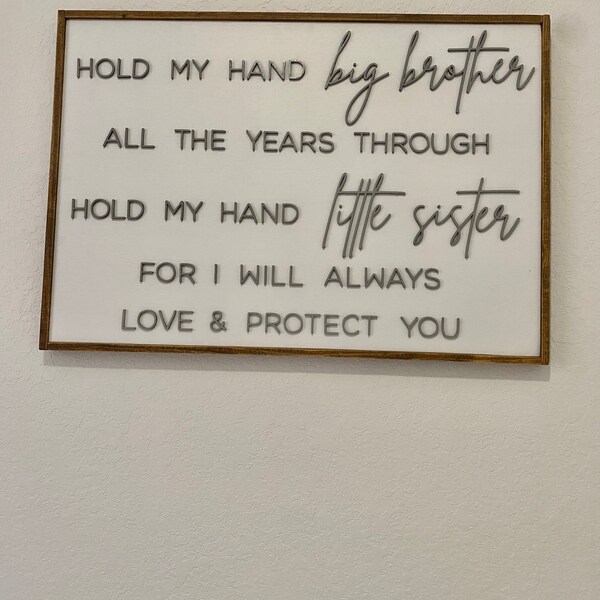 HOLD MY HAND big brother
ALL THE YEARS THROUGH
HOLD MY HAND little sister
FOR I WILL ALWAYS
LOVE & PROTECT YOU